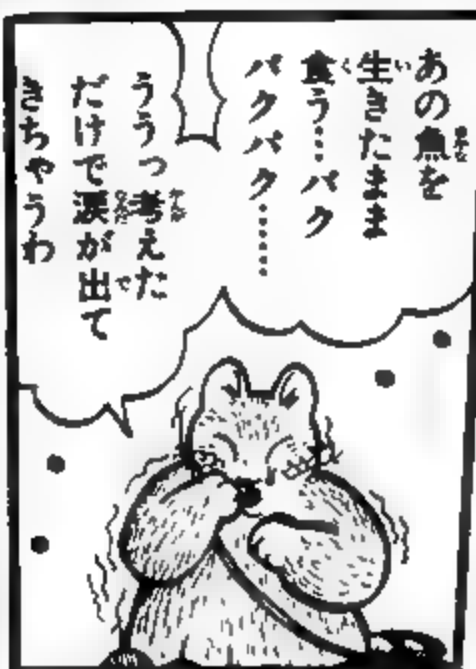 あの魚を
生きたまま
食う…パク
パクパク……
ううっ考えた
だけで涙が出て
きちゃうわ